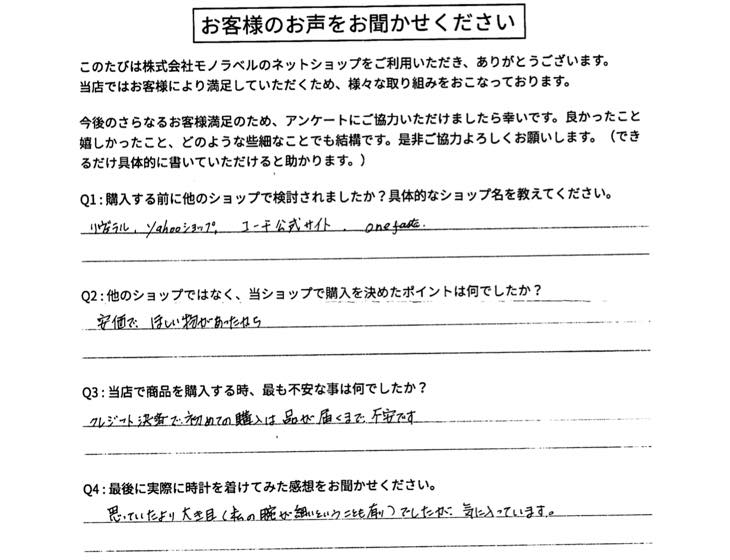 お客様のお声をお聞かせください
このたびは株式会社モノラベルのネットショップをご利用いただき、ありがとうございます。
当店ではお客様により満足していただくため、様々な取り組みをおこなっております。
今後のさらなるお客様満足のため、アンケートにご協力いただけましたら幸いです。良かったこと
嬉しかったこと、どのような些細なことでも結構です。是非ご協力よろしくお願いします。（でき
るだけ具体的に書いていただけると助かります。）
Q1：購入する前に他のショップで検討されましたか？具体的なショップ名を教えてください。
リヴラル、Yahooショップ、コーチ公式サイト、
Q2：他のショップではなく、当ショップで購入を決めたポイントは何でしたか？
安価で、ほしい物があったから
Q3：当店で商品を購入する時、最も不安な事は何でしたか？
クレジット決済で初めての購入は品が届くまで、不安です
Q4：最後に実際に時計を着けてみた感想をお聞かせください。
思っていたより大き目（私の腕が細いということも有り）でしたが、気に入っています。